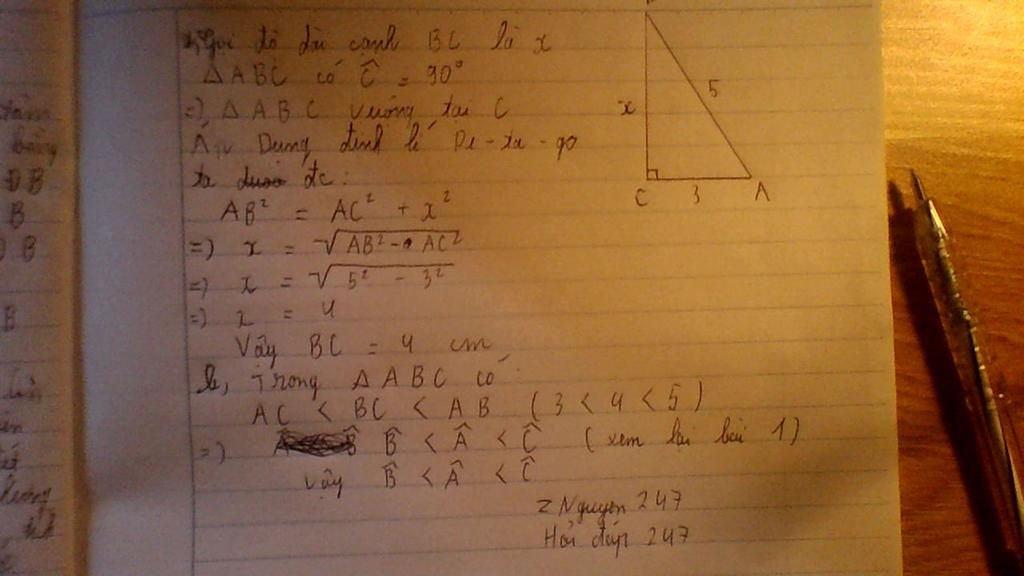 a, Gọi độ dài cạnh BC là x
Δ ABC có Ĉ = 90°
=) Δ ABC vuông tại C
Áp Dụng định lí Pi-ta-go
ta đc:
AB² = AC² + x²
=) x = √(AB² - AC²)
=) x = √(5² - 3²)
=) x = 4
Vậy BC = 4 cm
b, Trong Δ ABC có
AC < BC < AB (3 < 4 < 5)
=) B̂ < Â < Ĉ (xem lại bài 1)
Vậy B̂ < Â < Ĉ
zNguyen 247
Hỏi đáp 247
x
5
C 3 A
B
ĐB
B
B
B